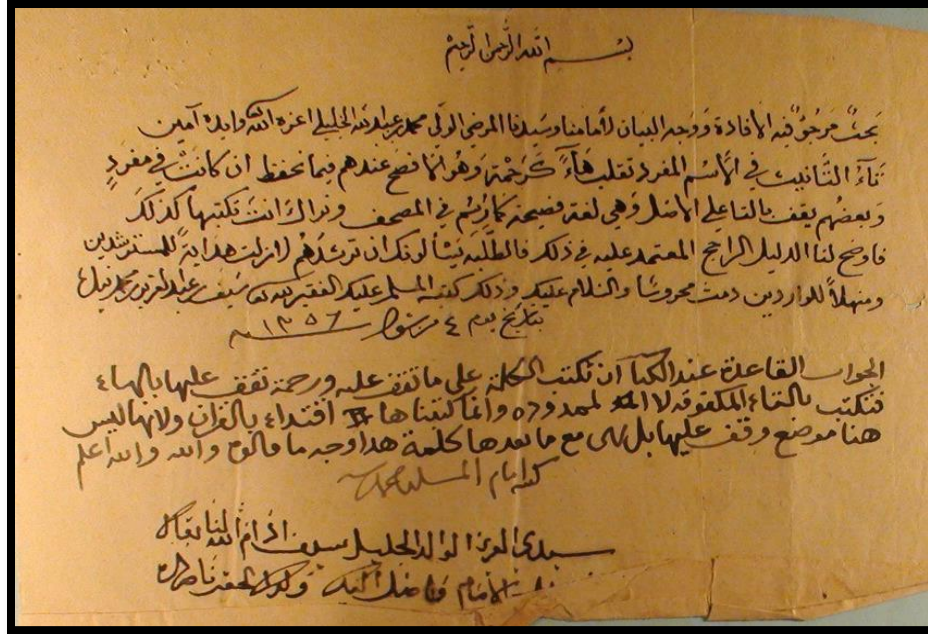 بسم الله الرحمن الرحيم
بحث مرجو فيه الافادة ووجه البيان لأمامنا وسيدنا المرضي الولي محمد بن عبدالله الخليلي اعزه الله وايده آمين
تاء التأنيث في الأسم المفرد تقلب هاءً كرحمة وهو الافصح عندهم فيما نحفظ ان كانت في مفردٍ
وبعضهم يقف بالتا على الاصل وهي لغة فصيحة كما رسم في المصحف ونراك انت تكتبها كذلك
فاوضح لنا الدليل الراجح المعتمد عليه في ذلك فالطلبة يسألونك ان ترشدهم لا زلت هداية للمسترشدين
ومنهلاً للواردين دمت محروسا والسلام عليك وذلك كتبه المسلم عليك الفقير لله سيف بن عبدالعزيز بن محمد
بتاريخ يوم ٤ من شوال ١٣٥٦
الجواب القاعدة عند الكتاب أن تكتب الكلمة على ما تقف عليه ورحمة تقف عليها بالهاء
فتكتب بالتاء المكفوفة لا الممدوده وانما كتبناها اقتداء بالقران ولانها ليس
هنا موضع وقف عليها بل هى مع ما بعدها كلمة هذا وجه ما قالوه والله والله اعلم
كتبه امام المسلمين محمد
سيدي العزيز الوالد الجليل سيف ادام الله لنا بقاك
الأمام